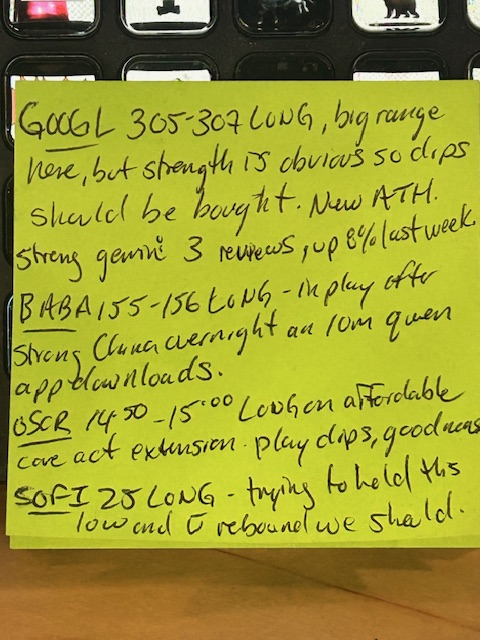 GOOGL 305-307 LONG, big range
here, but strength is obvious so dips
should be bought. New ATH.
Strong gemini 3 reviews, up 8% last week.
BABA 155-156 LONG - in play after
strong China overnight an 10m quen
app downloads.
OSCR 14.50 - 15.00 Long on affordable
care act extension. play dips, good news
SOFI 25 LONG - trying to hold this
low end rebound we should.